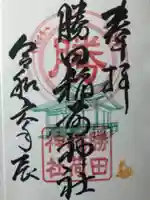 奉拝
勝田稲荷神社
令和六年辰
勝
勝田
神社